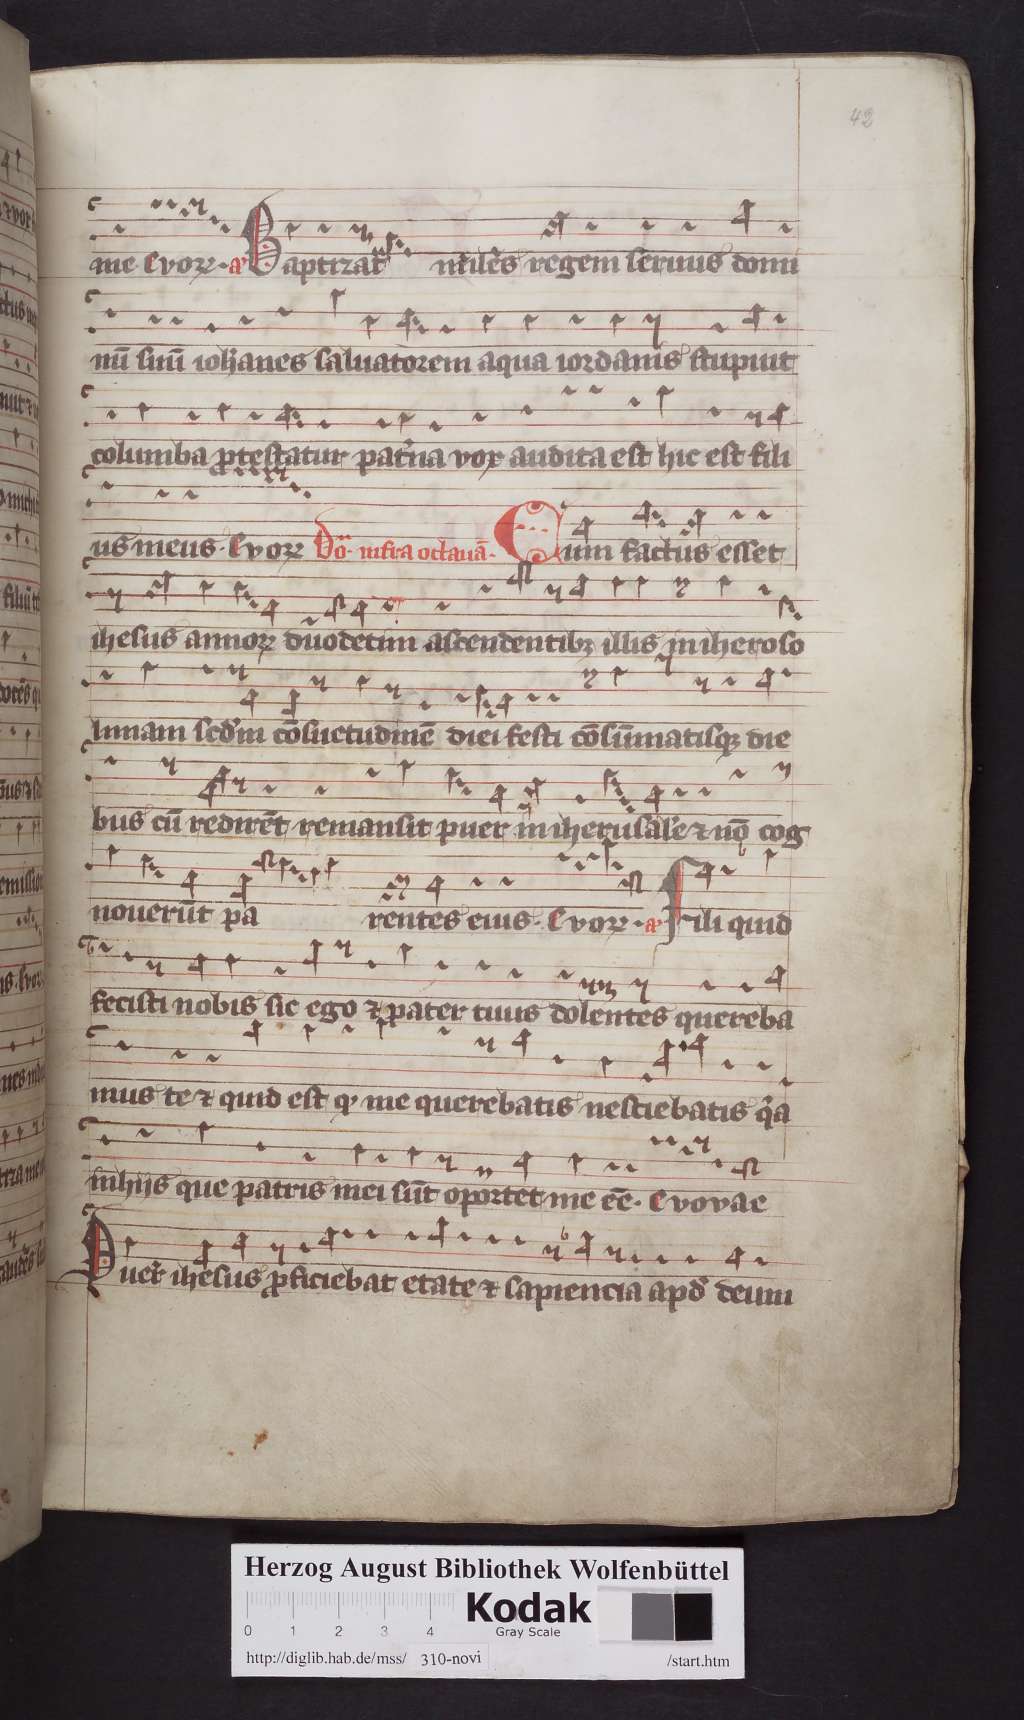 42
me Evoꝝ · a Baptizat̄ miles regem seruus domi
nū suū ioħanes saluatorem aqua iordanis stupuit
columba ꝓtestatur pat̄na vox audita est hic est fili
us meus · Evoꝝ Do᷒ · infra octauā · Cum factus esset
ihesus annoꝝ duodecim ascendentibꝫ illis in iheroso
limam scd̄m cōsuetudinē diei festi cōsūmatisqꝫ die
bus cū redirēt remansit puer in iherusalē ⁊ nō cog
nouerūt pa rentes eius · Evoꝝ · a Fili quid
fecisti nobis sic ego ⁊ pater tuus dolentes quereba
mus te ⁊ quid est ꝙ me querebatis nesciebatis q̄a
in hijs que patris mei sūt oportet me eē · Evovae
Puer ihesus ꝓficiebat etate ⁊ sapiencia apd̄ deum
Herzog August Bibliothek Wolfenbüttel
0 1 2 3 4 Kodak
Gray Scale
http://diglib.hab.de/mss/ 310-novi /start.htm